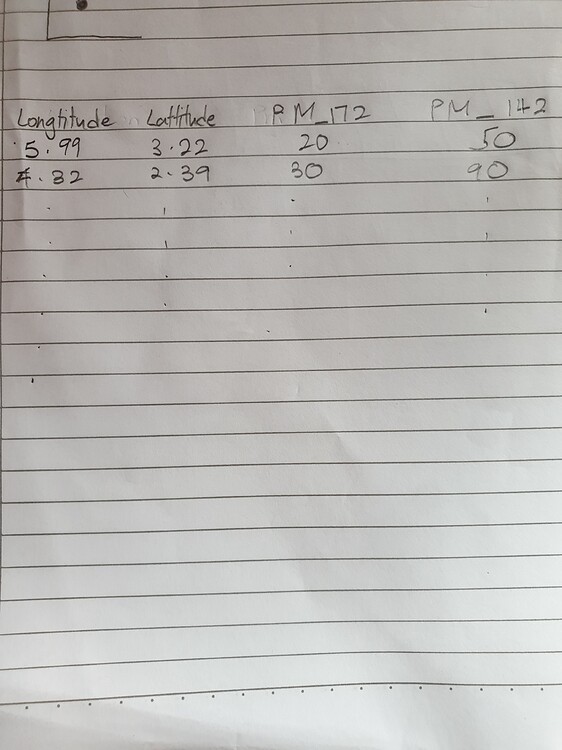 Longtitude Lattitude PM_172 PM_142
5.99 3.22 20 50
4.32 2.39 30 90